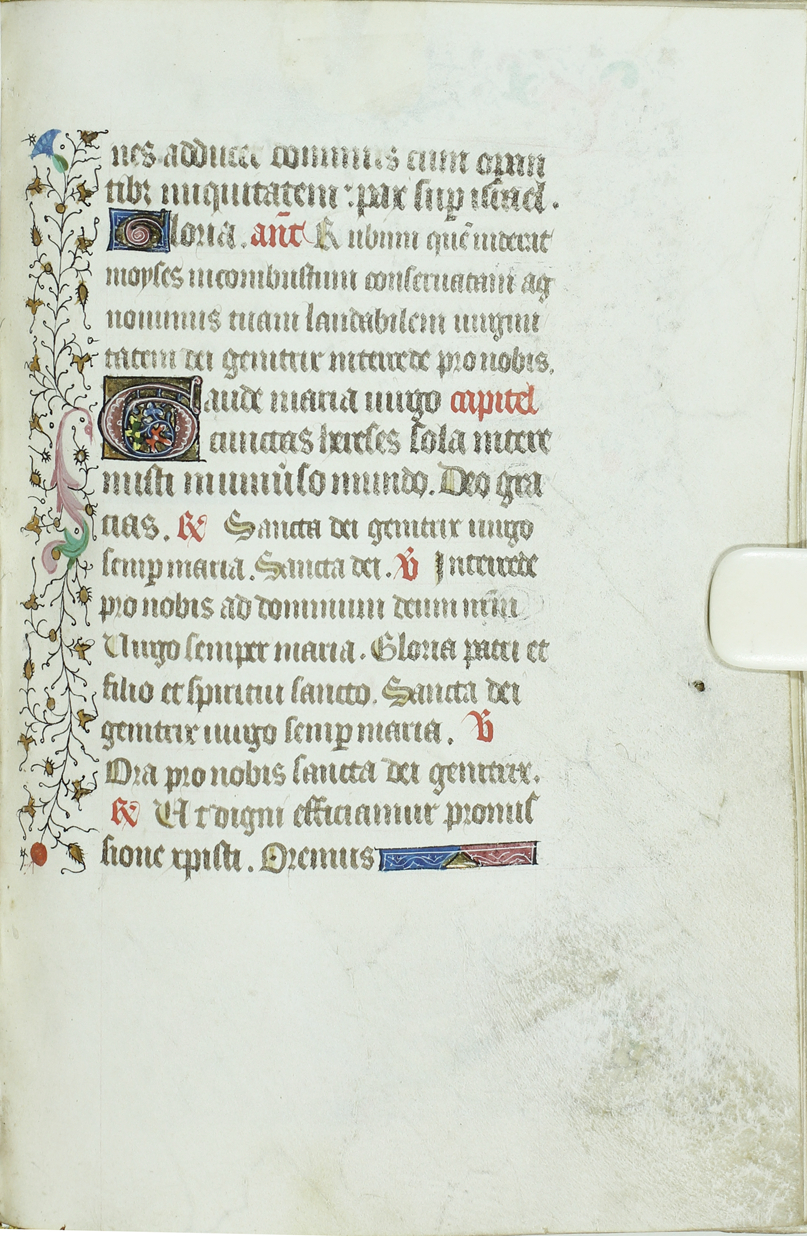 nes adducet dominus cum operan
tibus iniquitatem : pax sup isrl .
Gloria . ant Rubum que viderat
moyses incombustum conseruatam ag
nouimus tuam laudabilem uirgini
tatem dei genitrix intercede pro nobis .
Gaude maria uirgo capitel
cunctas hereses sola intere
misti in uniuso mundo . Deo gra
cias . R Sancta dei genitrix uirgo
semp maria . Sancta dei . V Intercede
pro nobis ad dominum deum nrm
Uirgo semper maria . Gloria patri et
filio et spiritui sancto . Sancta dei
genitrix uirgo semp maria . V
Ora pro nobis sancta dei genitrix .
R Ut digni efficiamur promis
sione xpisti . Oremus